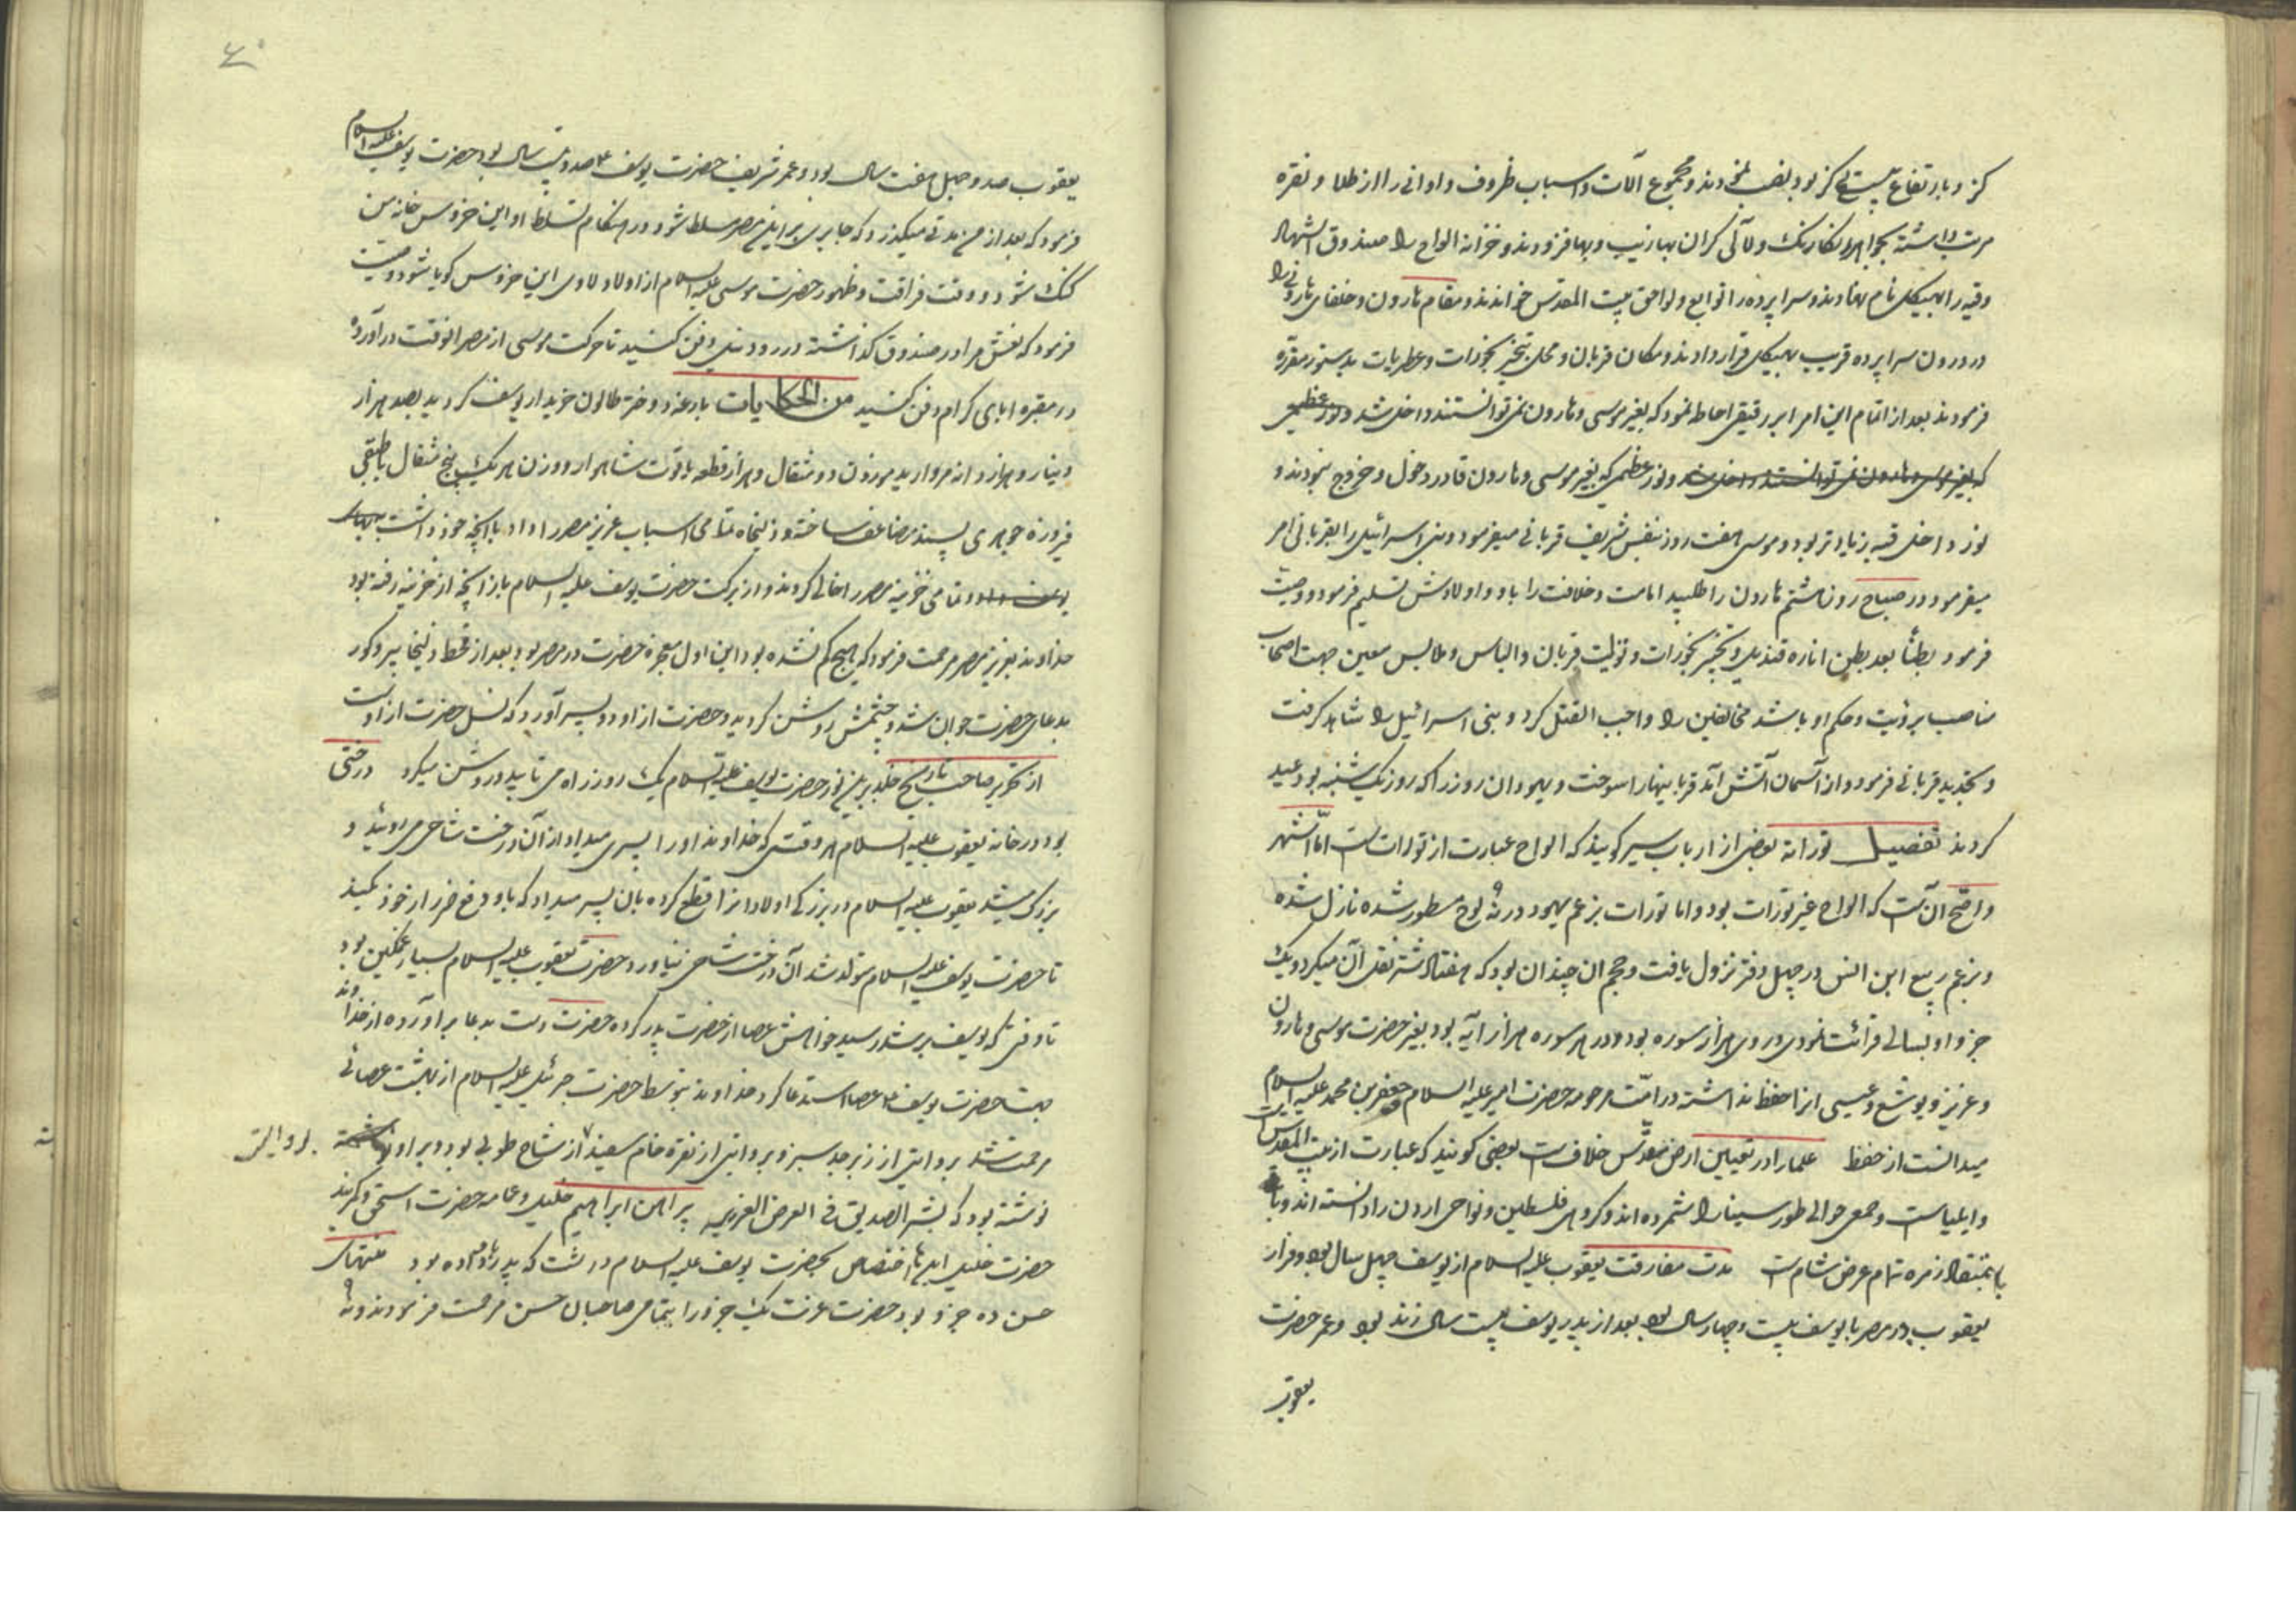 کز و بارتفاع بیست کز بود نصب نمودند و مجموع آلات و اسباب ظروف و اوانی را از طلا و نقره
مرتب داشته بجواهر و لآلی کران بها زیب و بها فزودند و خزانه الواح را صندوق الشهاد
وقبه را هیکل نام نهادند و سراپرده را توابع و لواحق بیت المقدس خواندند و مقام هارون و خلفای هارونی را
در درون سراپرده قریب بهیکل قرار دادند و مکان قربان و محل تبخیر بخورات و عطریات بدستور مقرره
فرمودند بعد از اتمام این امر ابر رقیقی احاطه نمود که بغیر موسی و هارون نمی توانستند داخل شد و نور عظیمی
که بغیر موسی و هارون نمی توانستند داخل شد و نور عظیمی که بغیر موسی و هارون قادر دخول و خروج نبودند و
نور داخل قبه زیادتر بود و موسی هفت روز بنفس شریف قربانی میفرمود و بنی اسرائیل را بقربانی امر
میفرمود در صباح روز هشتم هارون را طلبید امامت و خلافت را باو و اولادش تسلیم فرمود و وصیت
فرمود بطناً بعد بطن اناره قندیل و تبخیر بخورات و تولیت قربان و الباس و ملابس معین جهت اصحاب
مناصب برؤیت و حکم او باشد مخالفین را واجب القتل کرد و بنی اسرائیل را شاهد کرفت
و بتجدید قربانی فرمود و از آسمان آتش آمد قربانیها را سوخت و یهودان روز را که روز یکشنبه بود عید
کردند تفصیل توراته بعضی از ارباب سیر کویند که الواح عبارت از تورات است اما اشهر
و اصح آن است که الواح غیر تورات بود و اما تورات بزعم یهود در نه لوح مسطور شده نازل شده
و بزعم ربیع ابن انس در چهل دفتر نزول یافت و حجم ان چندان بود که هفتاد شتر نقل آن میکرد و یک
جزو او بسالی قرائت نمودی و در وی هزار سوره بود و در هر سوره هزار آیه بود بغیر حضرت موسی و هارون
و عزیز و یوشع و عیسی انرا حفظ نداشته در امت مرحومه حضرت امیر علیه السلام و جعفر بن محمد علیه السلام
میدانست از حفظ علما را در تعیین ارض مقدس خلاف است بعضی کویند که عبارت از بیت المقدس
و ایلیاست و جمعی حوالی طور سینا را شمرده اند و کروهی فلسطین و نواحی اردن را دانسته اند و با
باعتقاد زمره تمام عرض شام است مدت مفارقت یعقوب علیه السلام از یوسف چهل سال بود و قرار
یعقوب در مصر با یوسف بیست و چهار سال بود بعد از پدر یوسف بیست سال زنده بود و عمر حضرت
یعقوب
۶۰
یعقوب صد و چهل هفت سال بود و عمر شریف حضرت یوسف ع صد و بیست سال بود حضرت یوسف علیه السلام
فرمود که بعد از من مدتی میکذرد که جابری بر اهل مصر مسلط شود در هنکام تسلط او این خروس خانه من
کنک شود و وقت فراقت و ظهور حضرت موسی علیه السلام از اولاد لاوی این خروس کویا شود وصیت
فرمود که نعش مرا در صندوق کذاشته در رود نیل دفن کنید تا حرکت موسی از مصر انوقت در آورده
در مقبره ابای کرام دفن کنید من الحکایات بارعه دختر طالون خریدار یوسف کردید بصد هزار
دینار و هزار دانه مروارید موزون دو مثقال و هزار قطعه یاقوت شاهوار و وزن هر یک پنج مثقال با طبقی
فیروزه جوهری پسند مضاعف ساخته و زلیخاه تمامی اسباب عزیز مصر را داد با آنچه خود داشت
یوسف داد و تمامی خزینه مصر را خالی کردند و از برکت حضرت یوسف علیه السلام باز آنچه از خزینه رفته بود
خداوند بعزیز مصر مرحمت فرمود که هیچ کم نشده بود این اول معجزه حضرت در مصر بود بعد از قحط زلیخا پیر و کور
بدعای حضرت جوان شد و چشمش روشن کردید و حضرت از او دو پسر آورد که نسل حضرت از اوست
از تحریر صاحب تاریخ خلد برین نور حضرت یوسف علیه السلام یک روز راه می تابید و روشن میکرد درختی
بود در خانه یعقوب علیه السلام هر وقتی که خداوند او را پسری میداد از آن درخت شاخی می روئید و
بزرک میشد یعقوب علیه السلام در بزرکی اولاد انرا قطع کرده بان پسر میداد که باو دفع ضرر از خود بکند
تا حضرت یوسف علیه السلام متولد شد آن درخت شاخی نیاورد و حضرت یعقوب علیه السلام بسیار غمکین بود
تا وقتی که یوسف برشد رسید خواهش عصا از حضرت پدر کرده حضرت دست بدعا برآورده از خداوند
جهت حضرت یوسف ع عصا استدعا کرد خداوند بتوسط حضرت جبرئیل علیه السلام از بهشت عصائی
مرحمت شد بروایتی از زبرجد سبز و بروایتی از نقره خام سفید از شاخ طوبی بود و بر او
بود و الیتی
نوشته بود که بشر الصدیق فی العرض الغریبه پیراهن ابراهیم خلیل و عمامه حضرت اسحق و کمربند
حضرت خلیل اینها اختصاص بحضرت یوسف علیه السلام داشت که پدر باو داده بود منتهای
حسن ده جزو بود حضرت عزت یک جزو را بتمامی صاحبان حسن مرحمت فرمودند و نه